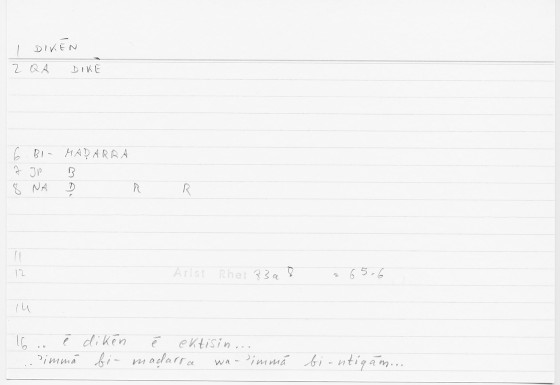 1 DIKĒN
2 QA DIKĒ
6 BI- MAḌARRA
7 JP B
8 NA Ḍ R R
11
12 Arist Rhet 93a = 65.6
14
16 .. ē dikēn ē ektisin...
..ʾimmā bi- maḍarra wa-ʾimmā bi-ntiqām...